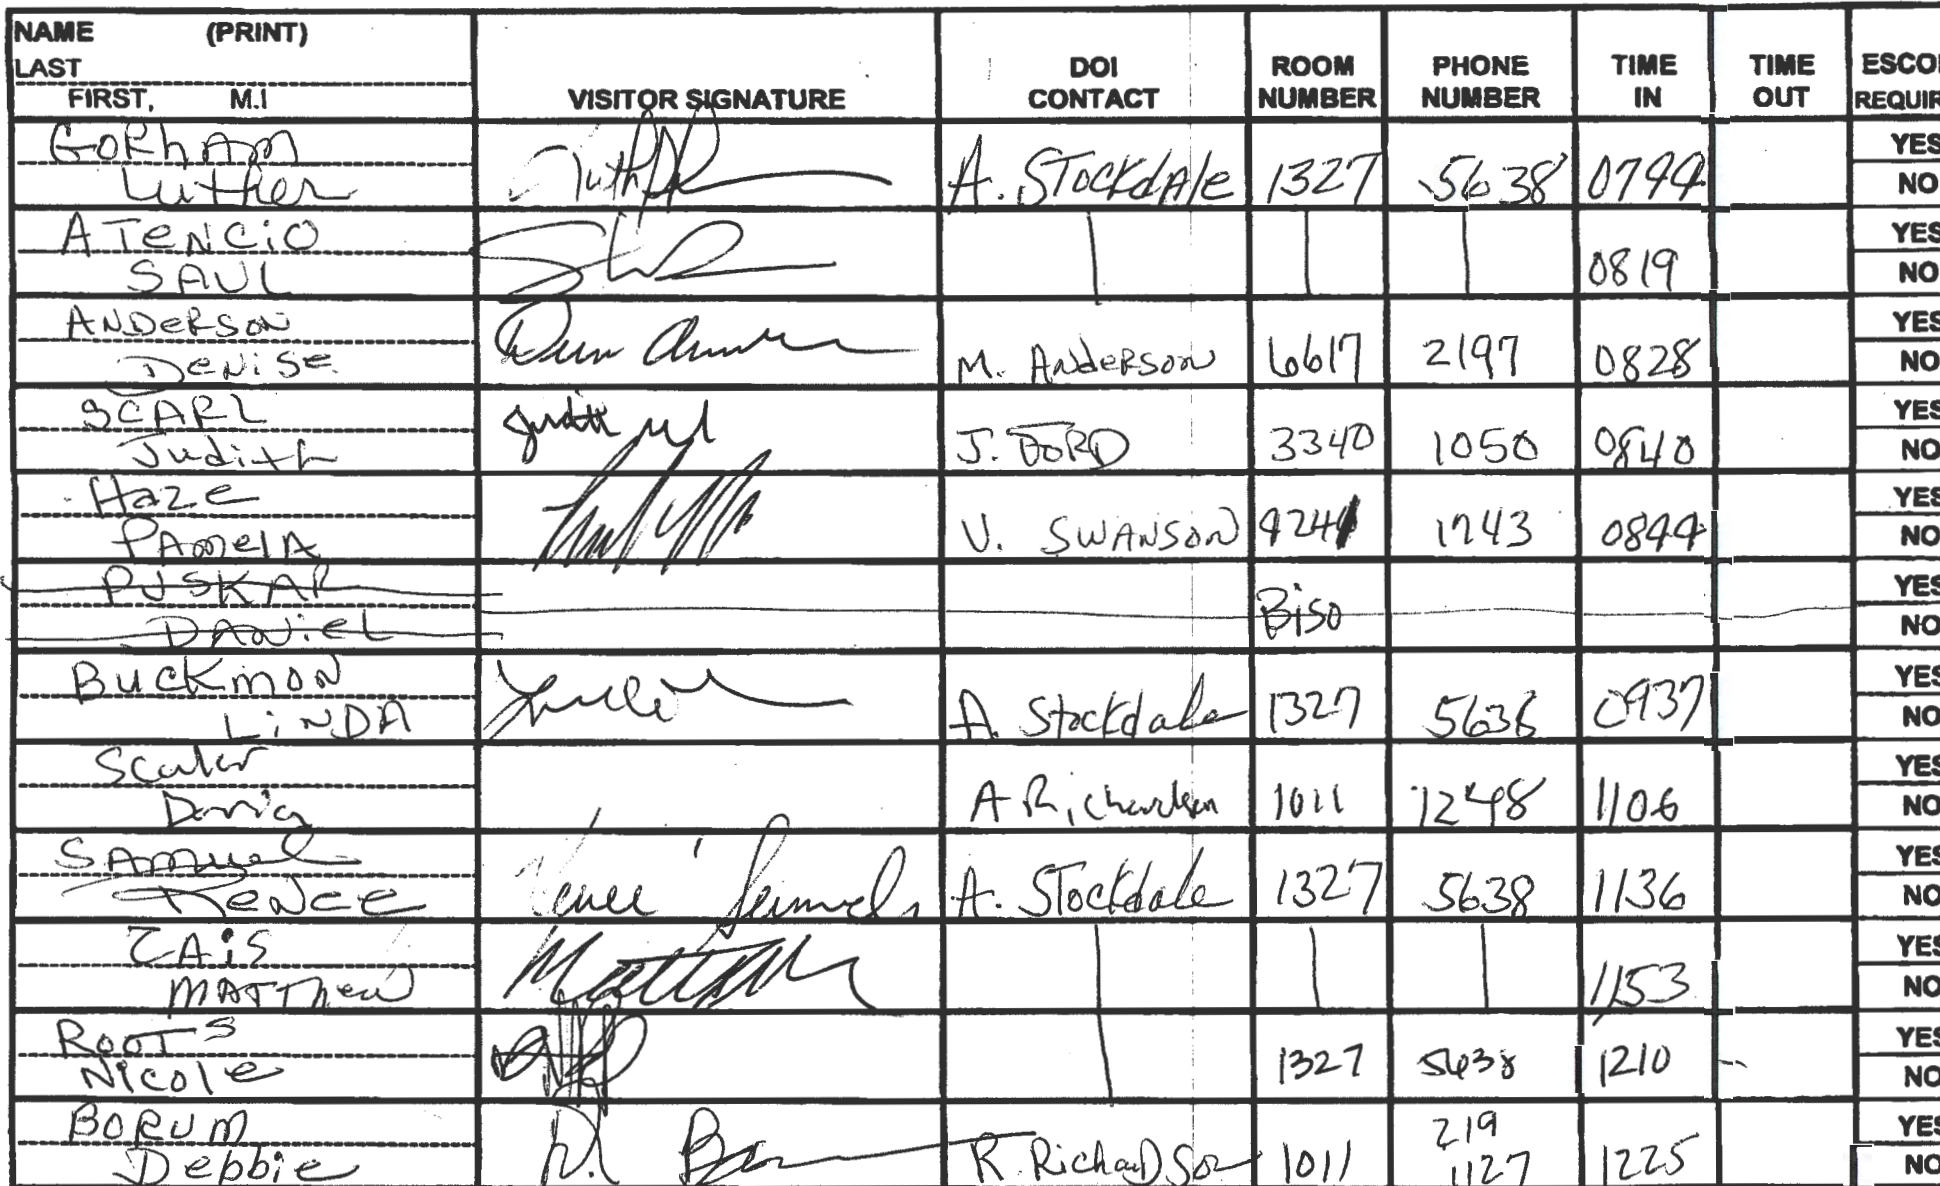 NAME (PRINT)
LAST
FIRST, M.I
VISITOR SIGNATURE
DOI CONTACT
ROOM NUMBER
PHONE NUMBER
TIME IN
TIME OUT
ESCO
REQUIR
GORHAM
Luther
A. Stockdale 1327 5638 0744
YES
NO
ATENCIO
SAUL
0819
YES
NO
ANDERSON
Denise
M. ANDERSON 6617 2197 0828
YES
NO
SCARL
Judith
J. FORD 3340 1050 0840
YES
NO
Haze
PAMELA
V. SWANSON 4241 1743 0844
YES
NO
PUSKAR
DANIEL
YES
NO
BUCKMON
LINDA
A. Stockdale 1327 5638 0937
YES
NO
A Richardson 1011 1248 1106
YES
NO
SAMUEL
RENEE
Renee Samuels
A. Stockdale 1327 5638 1136
YES
NO
MATTHEW
1153
YES
NO
ROOTS
Nicole
1327 5638 1210
YES
NO
BORUM
Debbie
R. Richardson 1011 219 1127 1225
YES
NO